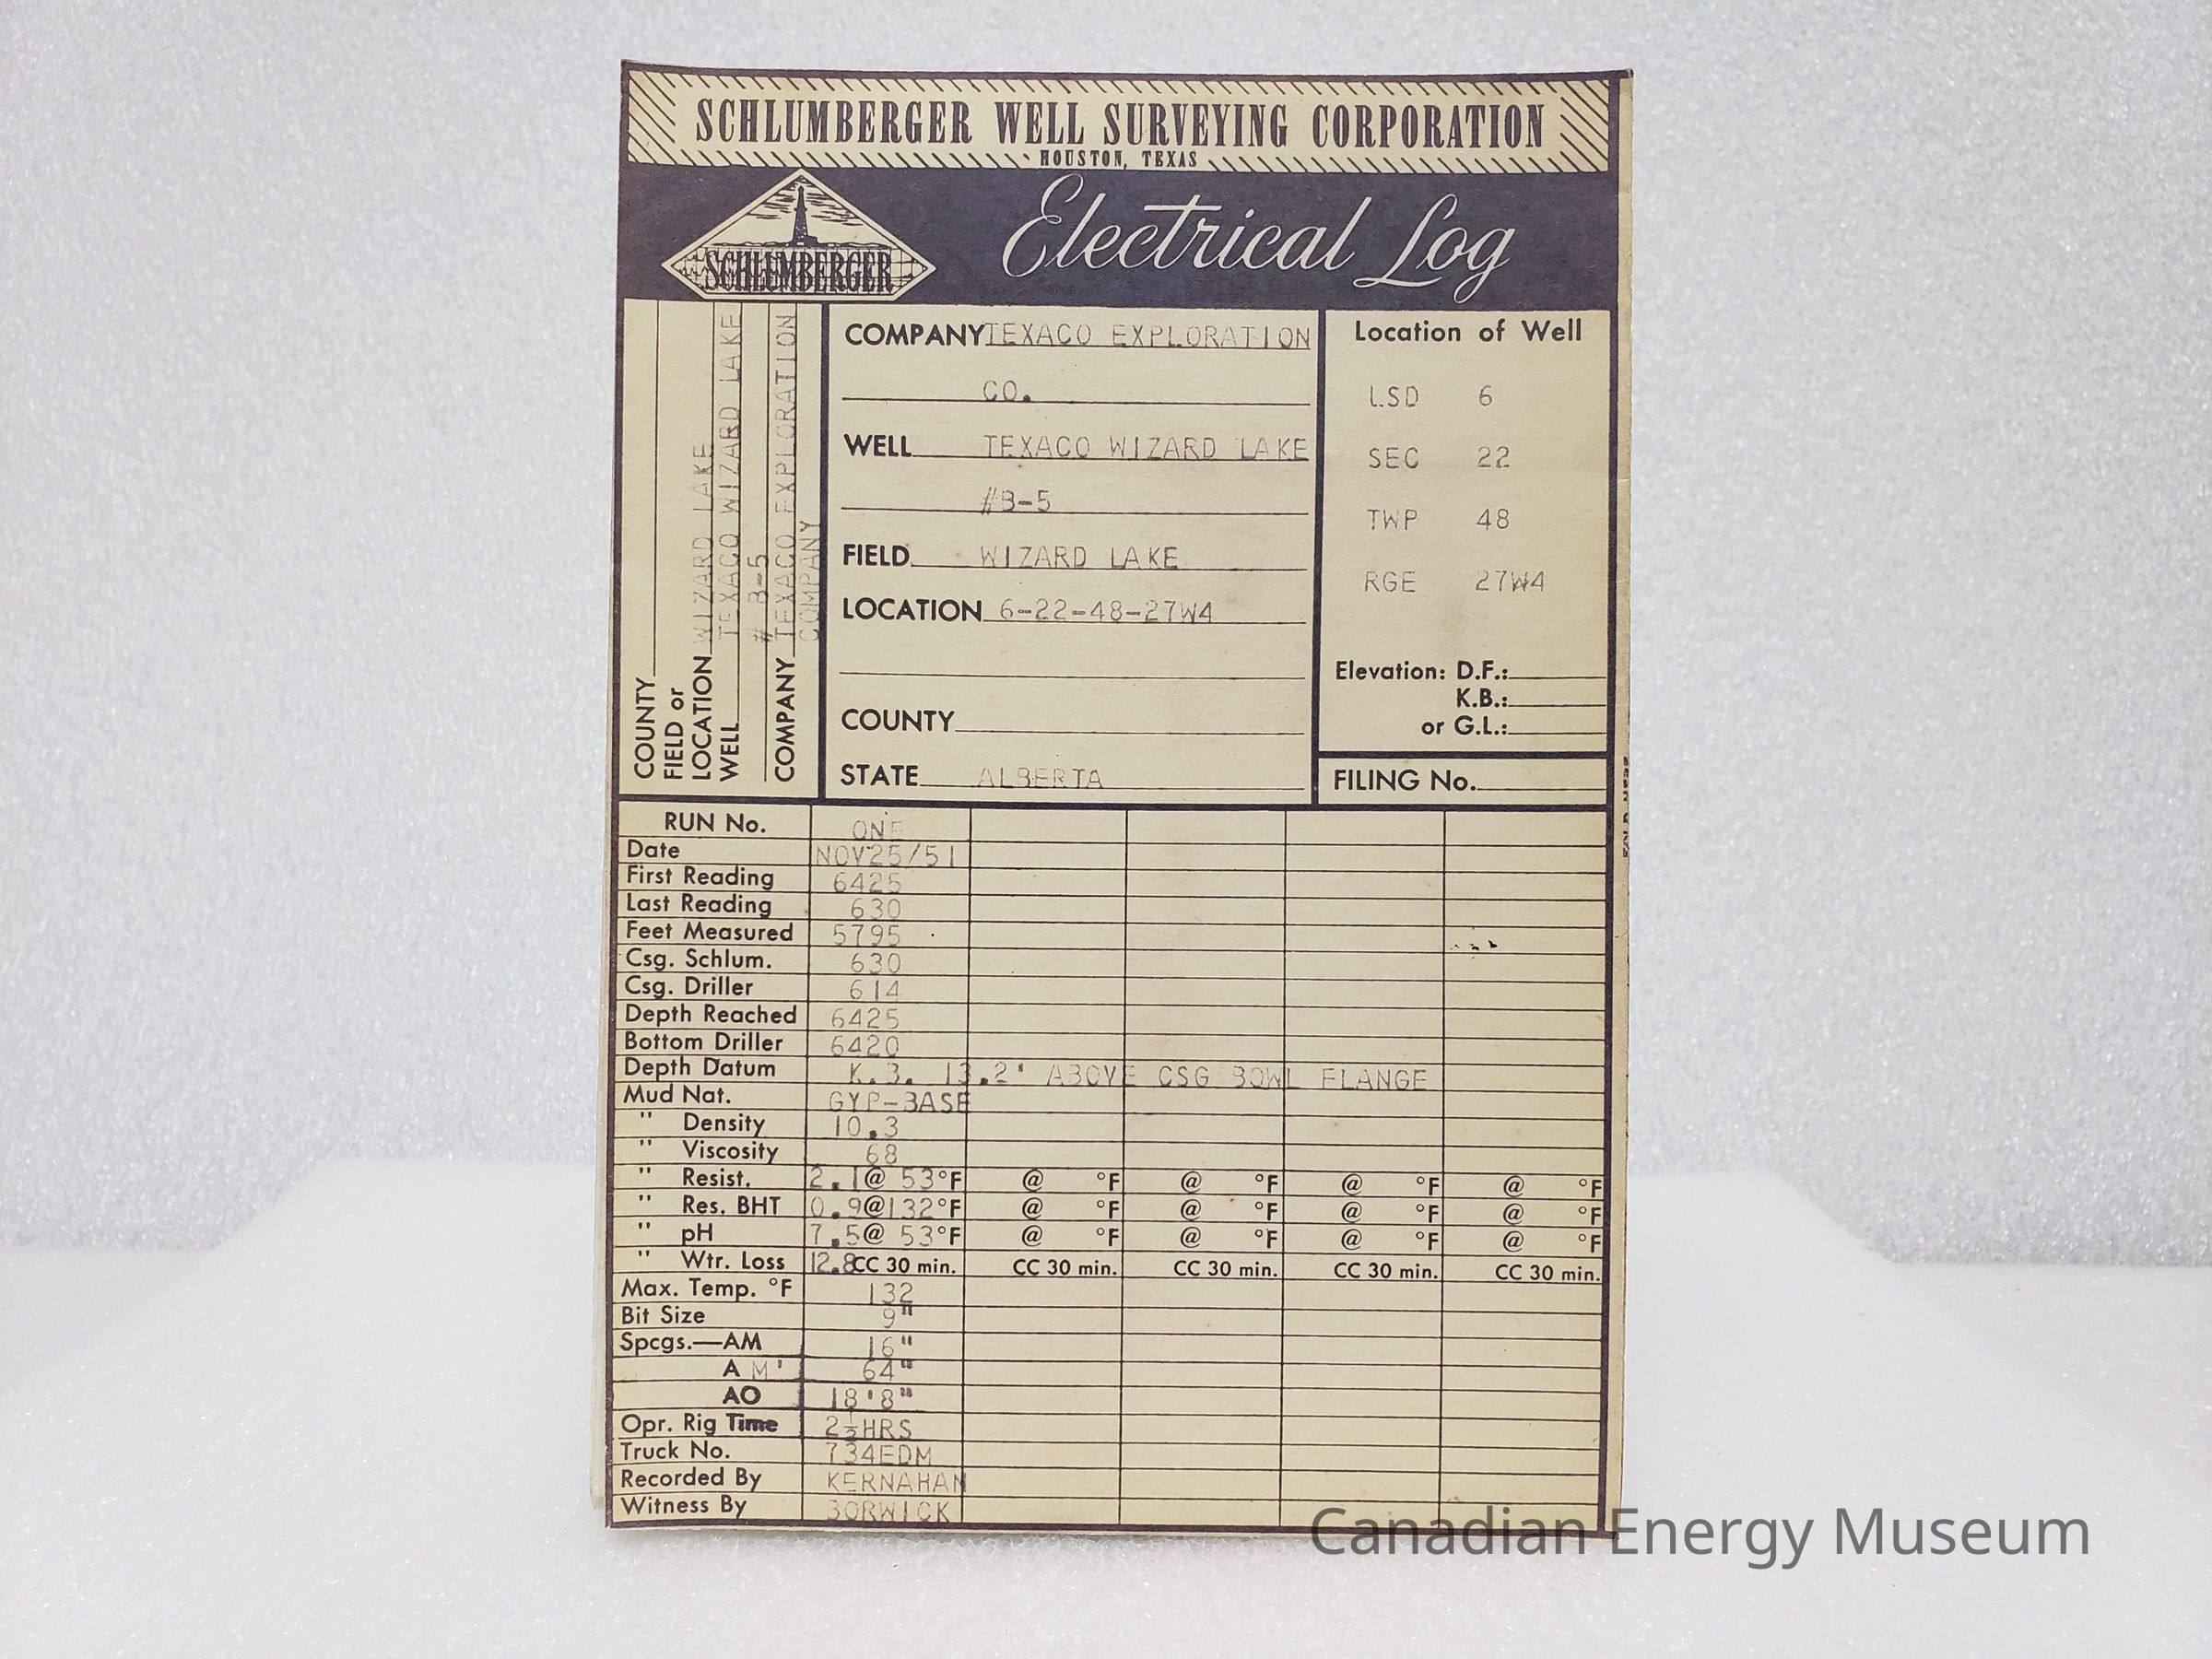 SCHLUMBERGER WELL SURVEYING CORPORATION
HOUSTON, TEXAS
SCHLUMBERGER
Electrical Log
COUNTY
FIELD or
LOCATION WIZARD LAKE
WELL TEXACO WIZARD LAKE
# B-5
COMPANY TEXACO EXPLORATION
COMPANY
COMPANY TEXACO EXPLORATION
CO.
WELL TEXACO WIZARD LAKE
#B-5
FIELD WIZARD LAKE
LOCATION 6-22-48-27W4
COUNTY
STATE ALBERTA
Location of Well
LSD 6
SEC 22
TWP 48
RGE 27W4
Elevation: D.F.:
K.B.:
or G.L.:
FILING No.
RUN No. ONE
Date NOV25/51
First Reading 6425
Last Reading 630
Feet Measured 5795
Csg. Schlum. 630
Csg. Driller 614
Depth Reached 6425
Bottom Driller 6420
Depth Datum K.B. 13.2' ABOVE CSG BOWL FLANGE
Mud Nat. GYP-BASE
" Density 10.3
" Viscosity 68
" Resist. 2.1@ 53°F @ °F @ °F @ °F @ °F
" Res. BHT 0.9@132°F @ °F @ °F @ °F @ °F
" pH 7.5@ 53°F @ °F @ °F @ °F @ °F
" Wtr. Loss 12.8CC 30 min. CC 30 min. CC 30 min. CC 30 min. CC 30 min.
Max. Temp. °F 132
Bit Size 9"
Spcgs.—AM 16"
A M' 64"
AO 18'8"
Opr. Rig Time 2½HRS
Truck No. 734EDM
Recorded By KERNAHAN
Witness By BORWICK
Canadian Energy Museum